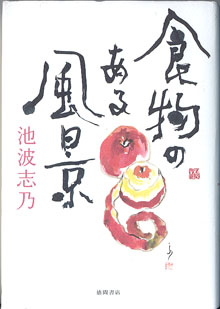 食物の
ある
風景
池波志乃
徳間書店